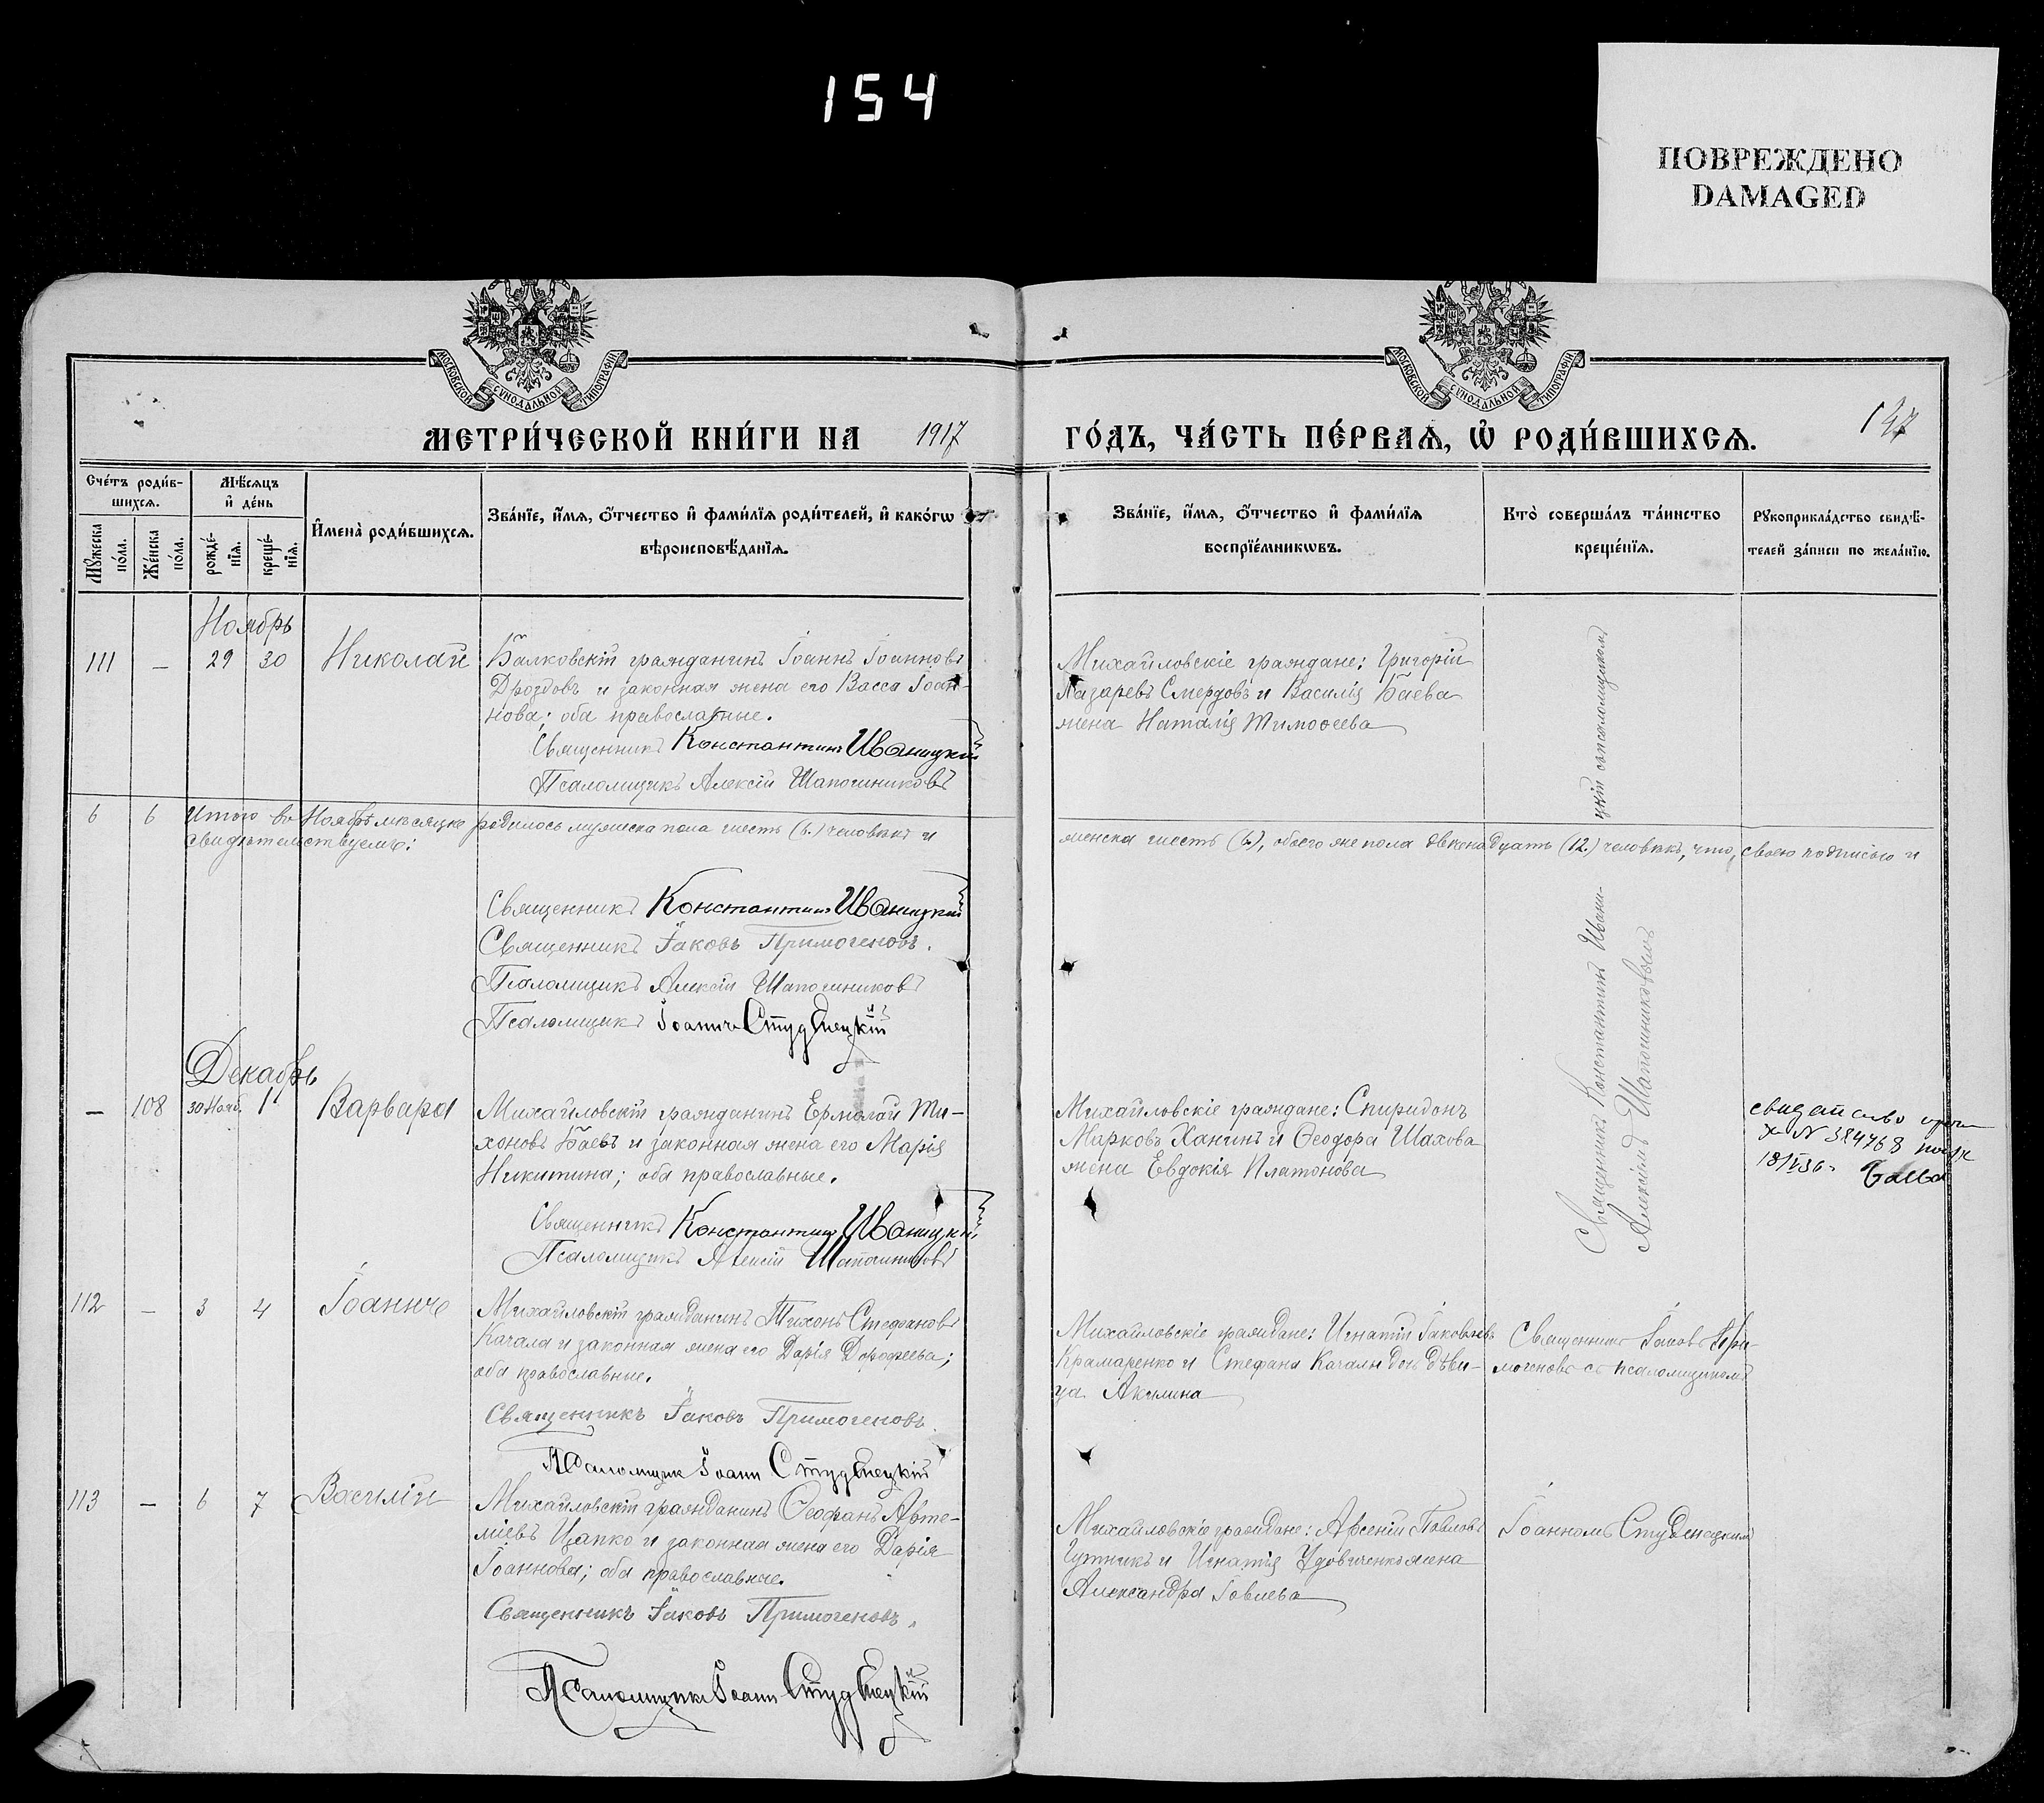 154
ПОВРЕЖДЕНО
DAMAGED
МОСКОВСКОЙ СѴНОДАЛЬНОЙ ТИПОГРАФІИ
МОСКОВСКОЙ СѴНОДАЛЬНОЙ ТИПОГРАФІИ
МЕТРИ́ЧЕСКОЙ КНИ́ГИ НА 1917
ГО́ДЪ, ЧА́СТЬ ПЕ́РВАЯ, Ѡ РОДИ́ВШИХСЯ.
147
Сче́тъ роди́в-
шихся.
Мѣ́сяцъ
и де́нь
Мꙋ́жеска
по́ла.
Же́нска
по́ла.
рожде́-
нїя.
креще́-
нїя.
Имена̀ роди́вшихся.
Зва́нїе, и́мя, ѻ́тчество и фами́лїя роди́телей, и како́гѡ
вѣроисповѣ́данїя.
Зва́нїе, и́мя, ѻ́тчество и фами́лїя
воспрїе́мникѡвъ.
Кто̀ соверша́лъ та́инство
креще́нїя.
Рꙋкоприкла́дство свидѣ́-
телей за́писи по жела́нїю.
Ноябрь
111 — 29 30 Николай
Балковскій гражданинъ Іоаннъ Іоанновъ
Дроздовъ и законная жена его Васса Іоан-
нова; оба православные.
Священникъ Константинъ Иваницкій
Псаломщикъ Алексій Шапошниковъ
Михайловскіе граждане: Григорій
Лазаревъ Смердовъ и Василія Баева
жена Наталія Тимоѳеева
6 6 Итого въ Ноябрѣ мѣсяцѣ родилось мужеска пола шесть (6.) человѣкъ и
женска шесть (6.), обоего же пола двѣнадцать (12.) человѣкъ, что, своею подписью и
свидѣтельствуемъ:
Священникъ Константинъ Иваницкій
Священникъ Іаковъ Примогеновъ.
Псаломщикъ Алексій Шапошниковъ
Псаломщикъ Іоаннъ Студенецкій
Священникъ Константинъ Ивани-
цкій съ псаломщикомъ
Алексіемъ Шапошниковымъ
Декабрь
— 108 30 Нояб. 1 Варвара
Михайловскій гражданинъ Ермолай Ти-
хоновъ Баевъ и законная жена его Марія
Никитина; оба православные.
Священникъ Константинъ Иваницкій
Псаломщикъ Алексій Шапошниковъ
Михайловскіе граждане: Спиридонъ
Марковъ Ханинъ и Ѳеодора Шахова
жена Евдокія Платонова
N 384768
Баева
112 — 3 4 Іоаннъ
Михайловскій гражданинъ Тихонъ Стефановъ
Качала и законная жена его Дарія Дорофеева;
оба православные.
Священникъ Іаковъ Примогеновъ.
Псаломщикъ Іоаннъ Студенецкій
Михайловскіе граждане: Игнатій Іаковлевъ
Крамаренко и Стефана Качалы дочь дѣви-
ца Акилина
Священникъ Іаковъ При-
могеновъ съ псаломщикомъ
113 — 6 7 Василій
Михайловскій гражданинъ Ѳеофанъ Авте-
міевъ Цапко и законная жена его Дарія
Іоаннова; оба православные.
Священникъ Іаковъ Примогеновъ.
Псаломщикъ Іоаннъ Студенецкій
Михайловскіе граждане: Арсеній Павловъ
и Игнатія Удовиченко жена
Александра Іовлева
Іоанномъ Студенецкимъ